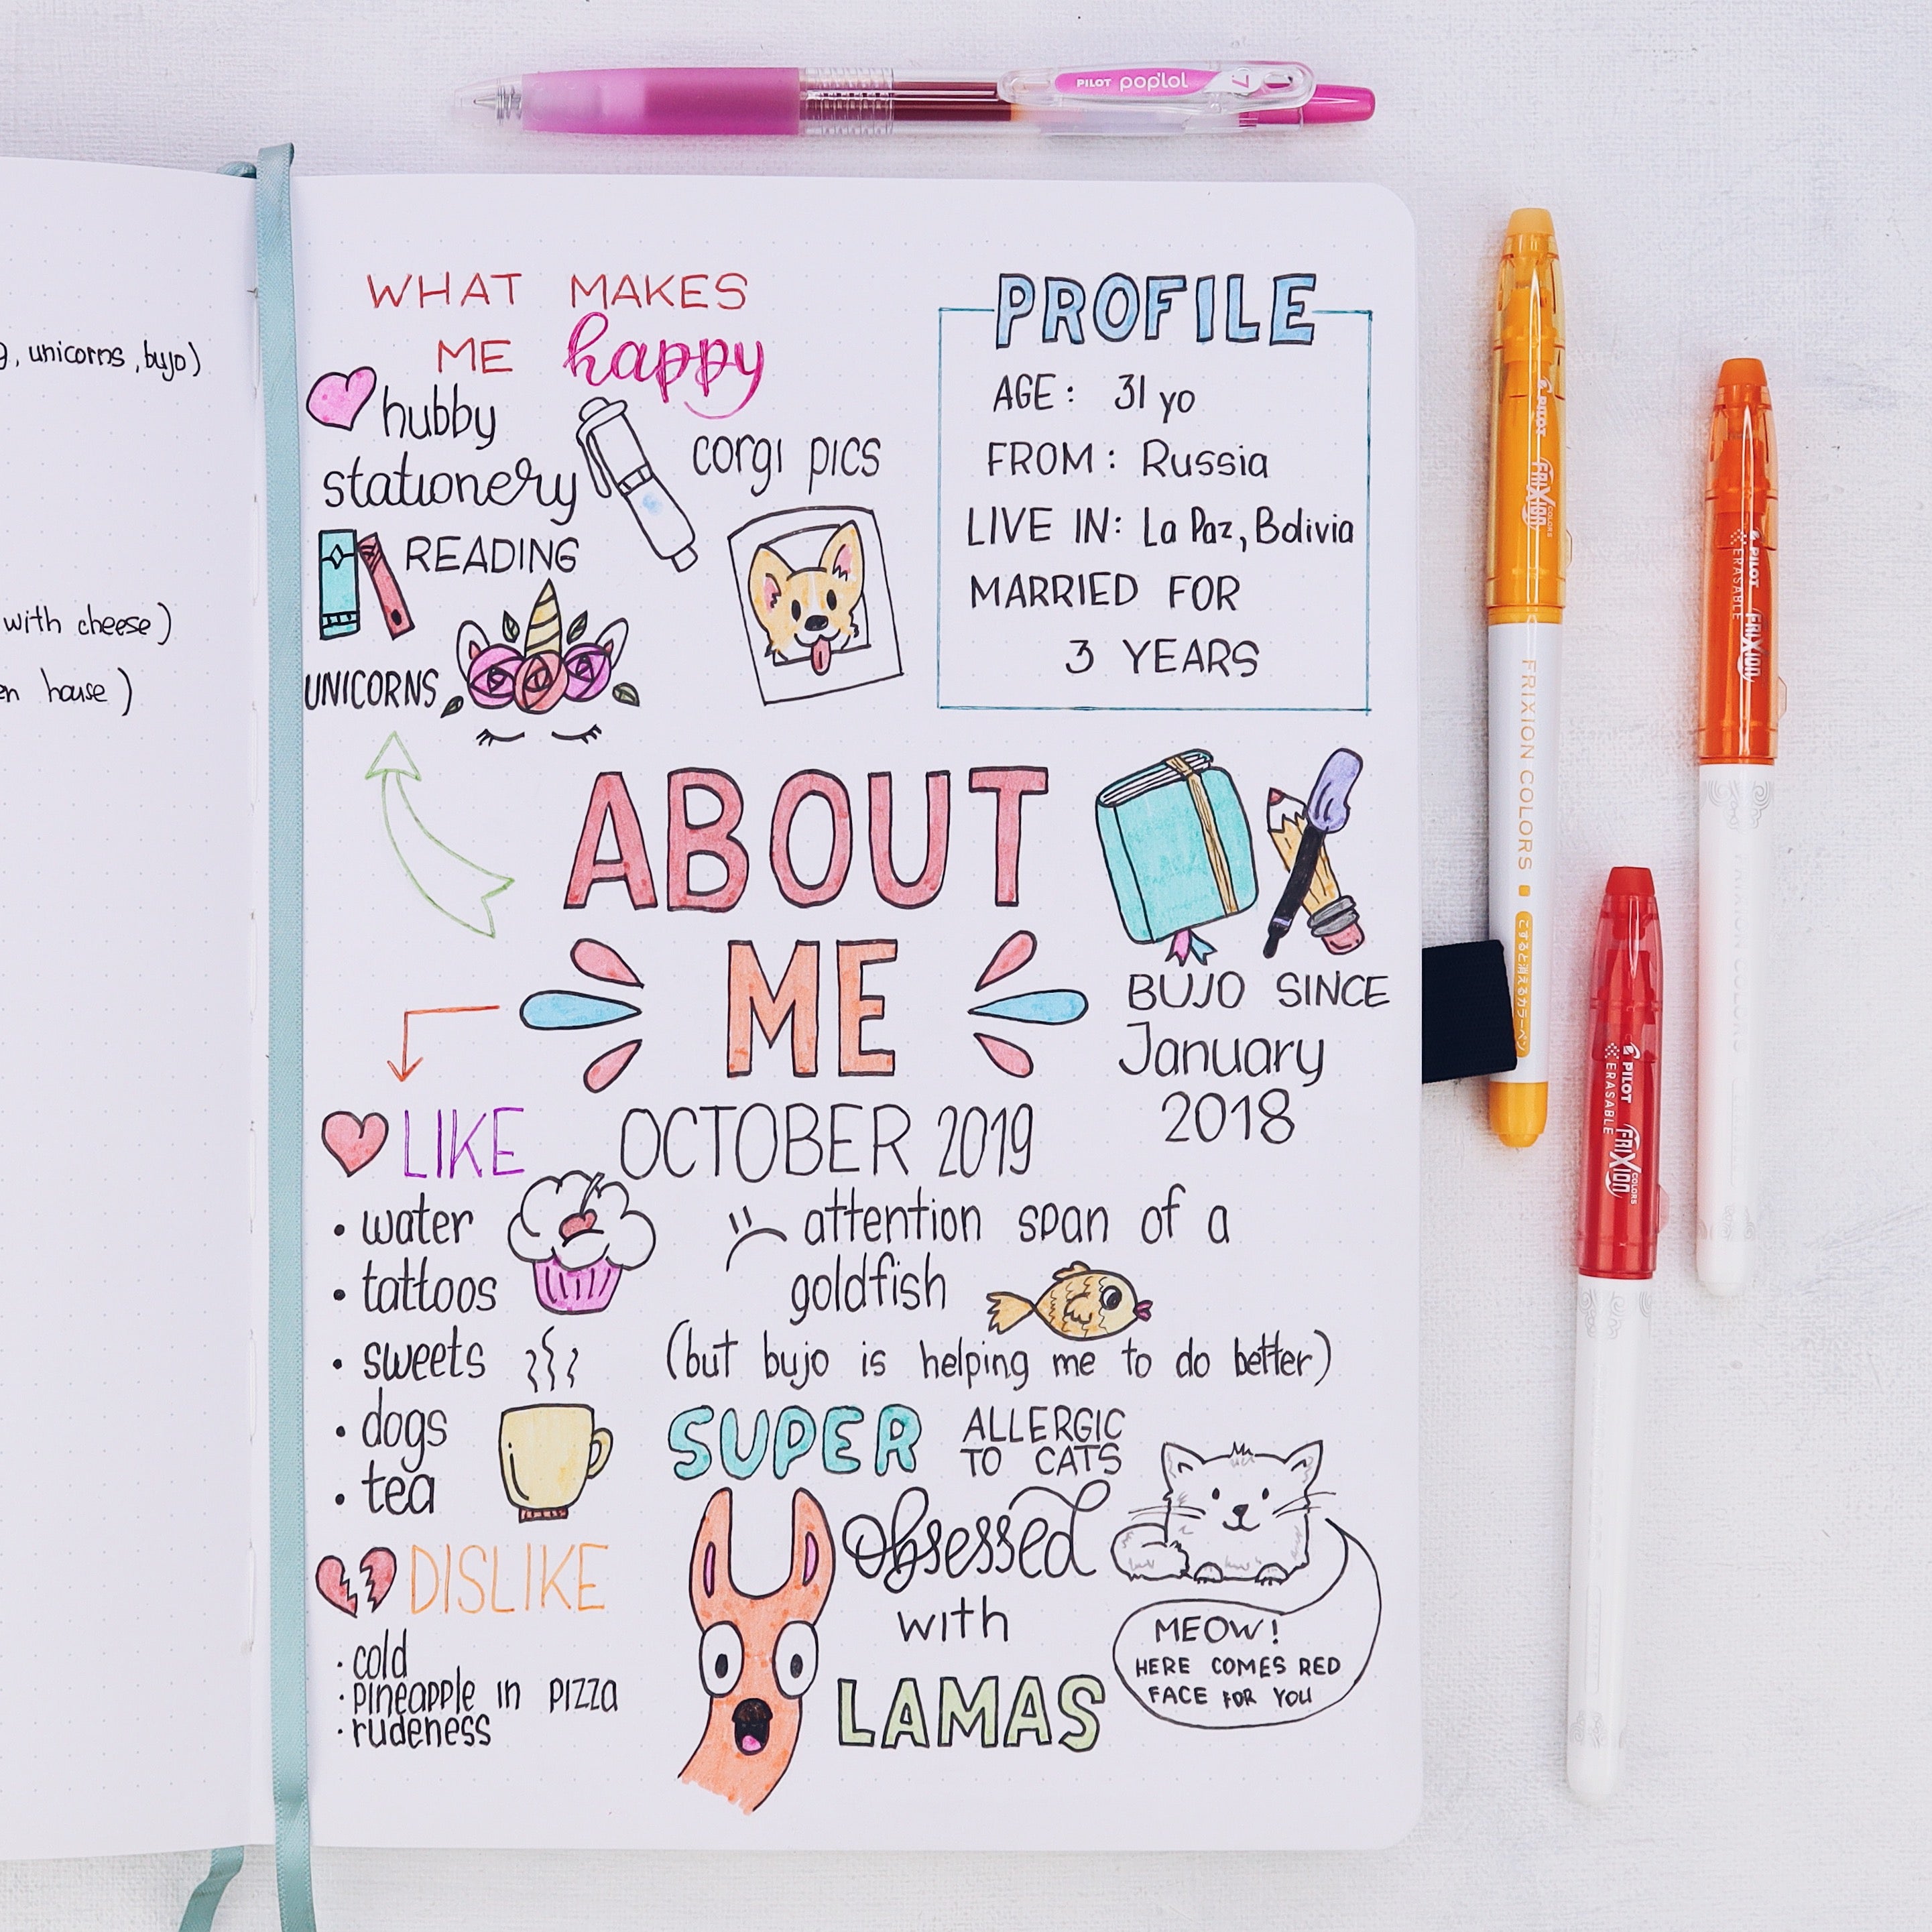 PILOT pop'lol 7
g, unicorns, bujo)
with cheese)
en house)
WHAT MAKES
ME happy
hubby
stationery
corgi pics
READING
UNICORNS
PROFILE
AGE: 31 yo
FROM: Russia
LIVE IN: La Paz, Bolivia
MARRIED FOR
3 YEARS
ABOUT
ME
OCTOBER 2019
BUJO SINCE
January
2018
LIKE
• water
• tattoos
• sweets
• dogs
• tea
DISLIKE
• cold
• pineapple in pizza
• rudeness
attention span of a
goldfish
(but bujo is helping me to do better)
SUPER
ALLERGIC
TO CATS
obsessed
with
LAMAS
MEOW!
HERE COMES RED
FACE FOR YOU
PILOT FRIXION COLORS
FRIXION COLORS
こすると消えるカラーペン
PILOT FRIXION
ERASABLE
PILOT FRIXION COLORS
ERASABLE